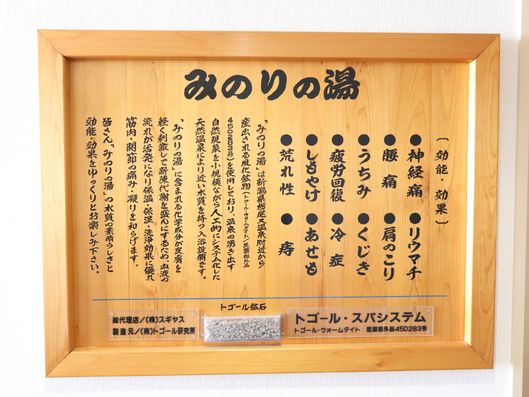 みのりの湯
〔効能・効果〕
●神経痛 ●リウマチ
●腰痛 ●肩のこり
●うちみ ●くじき
●疲労回復 ●冷症
●しもやけ ●あせも
●荒れ性 ●痔
〝みのりの湯〟は新潟県栃尾又温泉附近から
産出される風化鉱物(トゴール・ウォームタイト/医薬部外品
45D283号)を使用しており、温泉の湧き出す
自然現象を小規模ながら人工的にシステム化した
天然温泉により近い水質を持つ入浴設備です。
〝みのりの湯〟に含まれる化学成分が皮膚を
軽く刺激して新陳代謝を盛んにするため、血液の
流れが活発になり保温・保湿・洗浄効果に優れ
筋肉・関節の痛み・凝りを和らげます。
皆さん〝みのりの湯〟の水質の素晴らしさと
効能・効果をゆっくりとお楽しみ下さい。
トゴール鉱石
総代理店/(株)スギヤス
製造元/(株)トゴール研究所
トゴール・スパシステム
トゴール・ウォームタイト 医薬部外品45D283号